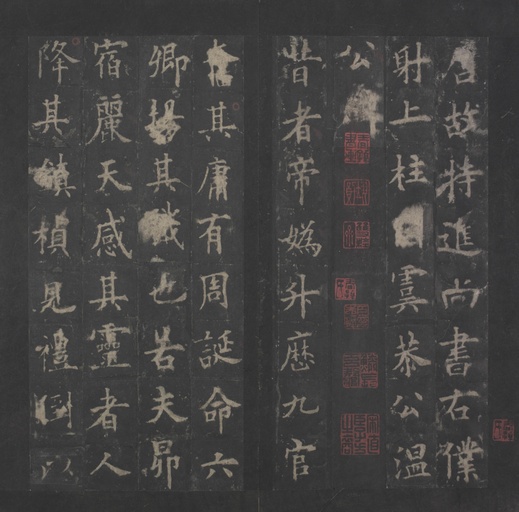 故特進尚書右僕
射上柱虞恭公溫
公
昔者帝媯升歷九官
其庸有周誕命六
卿揚其職也若夫昴
宿麗天感其靈者人
降其鎮楨見禮以